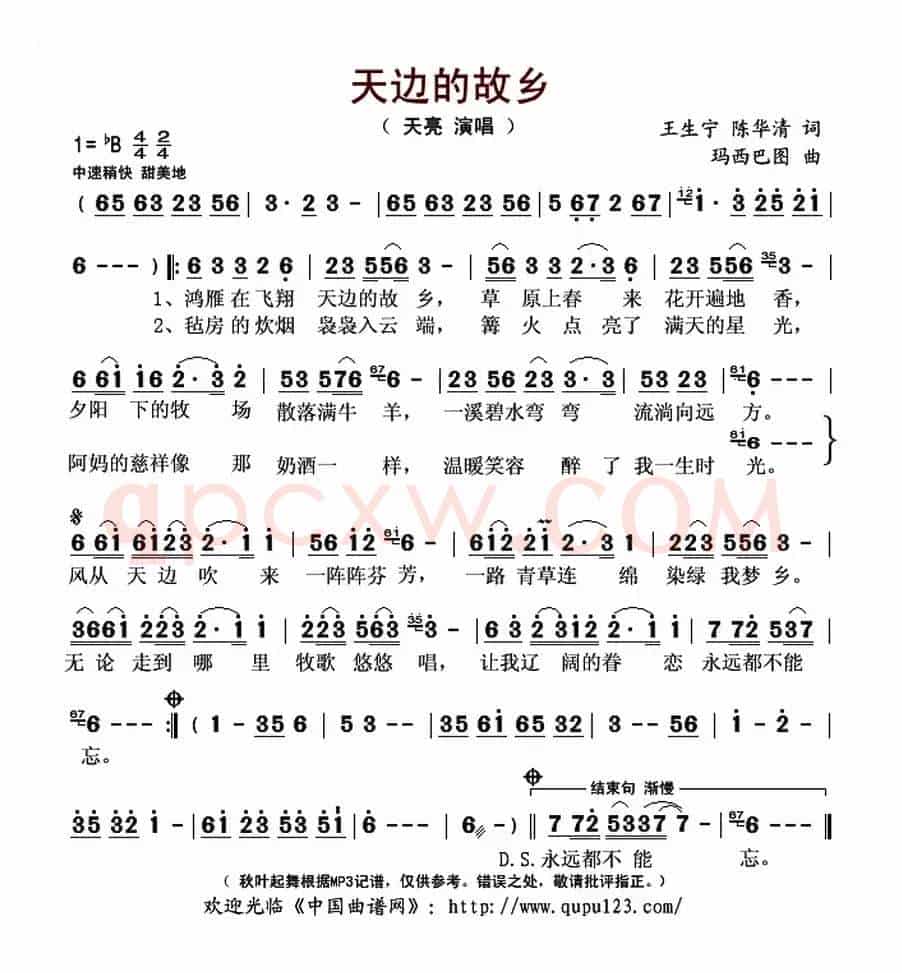 天边的故乡
（ 天亮 演唱 ）
王生宁 陈华清 词
1= ♭B 4/4 2/4
玛西巴图 曲
中速稍快 甜美地
( 65 63 23 56 | 3 · 2 3 - | 65 63 23 56 | 5 67 2 67 | 12 1 · 3 25 21 |
6 - - - ) ‖: 6 3 3 2 6 | 23 556 3 - | 56 3 3 2·3 6 | 223 556 35 3 - |
1、鸿雁在飞翔 天边的故 乡， 草 原上春 来 花开遍地 香，
2、毡房的炊烟 袅袅入云 端， 篝 火点亮了 满天的星 光，
6 61 16 2·3 2 | 53 576 67 6 - | 23 56 23 3·3 | 53 523 61 6 - - - |
夕阳 下的牧 场 散落满牛 羊， 一溪碧水弯 弯 流淌向远 方。
61 6 - - -
阿妈的慈祥像 那 奶酒一 样， 温暖笑容 醉 了 我一生时 光。
6 661 6123 2·1 1 | 56 12 61 6 - | 612 21 23 1 | 223 556 3 |
风从 天 边 吹 来 一阵阵芬 芳， 一路 青草连 绵 染绿 我梦 乡。
3661 223 2·1 1 | 323 563 35 3 - | 63 23 312 2·1 1 | 7 72 537 |
无 论 走到 哪 里 牧歌 悠悠 唱， 让我辽 阔的眷 恋 永远都不能
67 6 - - - :‖ ( 1 - 35 6 | 3 - 53 - | 35 61 65 32 | 3 - - 56 | 1 - 2 - |
忘。
结束句 渐慢
35 32 1 - | 61 23 53 51 | 6 - - - | 6 - ) ‖ 7 72 5337 7 - | 67 6 - - ‖
D.S.永远都不 能 忘。
（ 秋叶起舞根据MP3记谱，仅供参考。错误之处，敬请批评指正。）
欢迎光临《中国曲谱网》：http://www.qupu123.com/
qpcxw.COM